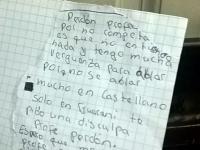 Perdon profe
por no completa
es que no entiendo
nada y tengo mucha
verguenza para ablar
porq no se ablar
mucho en Castellano
solo en Guarani te
pido una disculpa
Profe perdon.